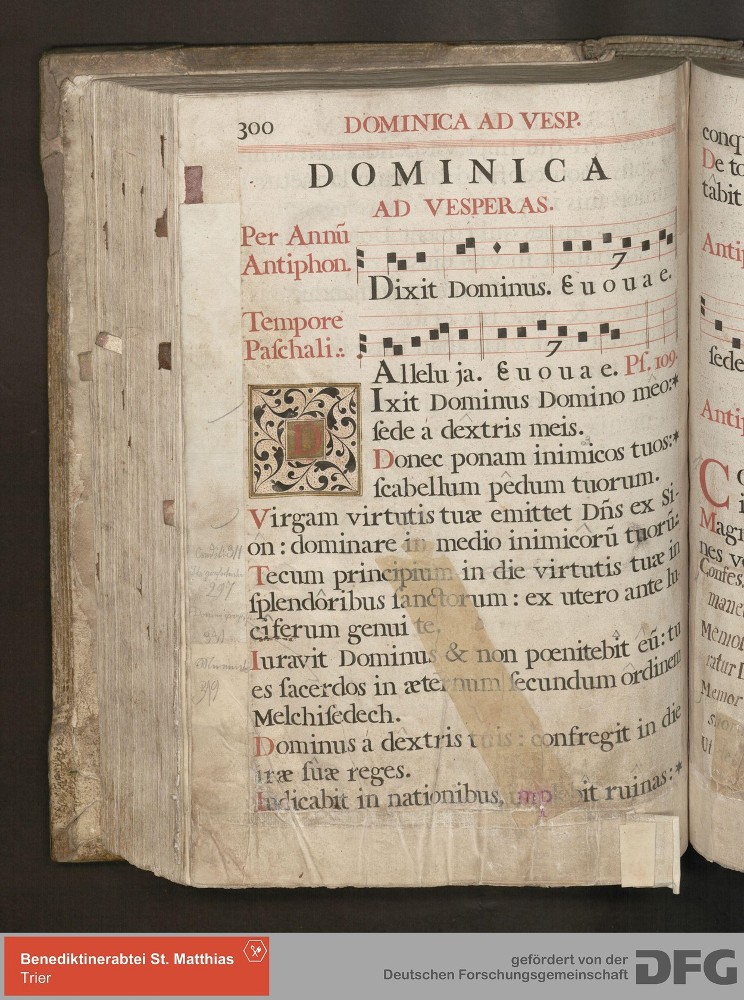 300 DOMINICA AD VESP.
DOMINICA
AD VESPERAS.
Per Annũ
Antiphon.
7
Dixit Dominus. Euouae.
Tempore
Paſchali.:.
7
Alleluja. Euouae. Pſ. 109.
DIxit Dominus Domino mêo:*
ſede à dêxtris meis.
Donec ponam inimicos tuos:*
ſcabellum pêdum tuorum.
Virgam virtutis tuæ emittet Dñs ex Si-
on: dominare in medio inimicorũ tuorũ:
Tecum principium in die virtutis tuæ in
ſplendôribus ſanctorum: ex utero ante lu-
cîferum genui te.
Iuravit Dominus & non pœnitebît eũ: tu
es ſacerdos in æternum ſecundum ôrdinem
Melchiſedech.
Dominus à dêxtris tuis: confregit in die
iræ ſûæ reges.
Iudicabit in nationibus, imp bit ruînas:*
conq
De to
tâbit
Antip
ſede
Antip
C
Magn
nes v
Confeſ
mane
Memor
ratur
Memor
Ut
Benediktinerabtei St. Matthias
Trier
gefördert von der
Deutschen Forschungsgemeinschaft
DFG